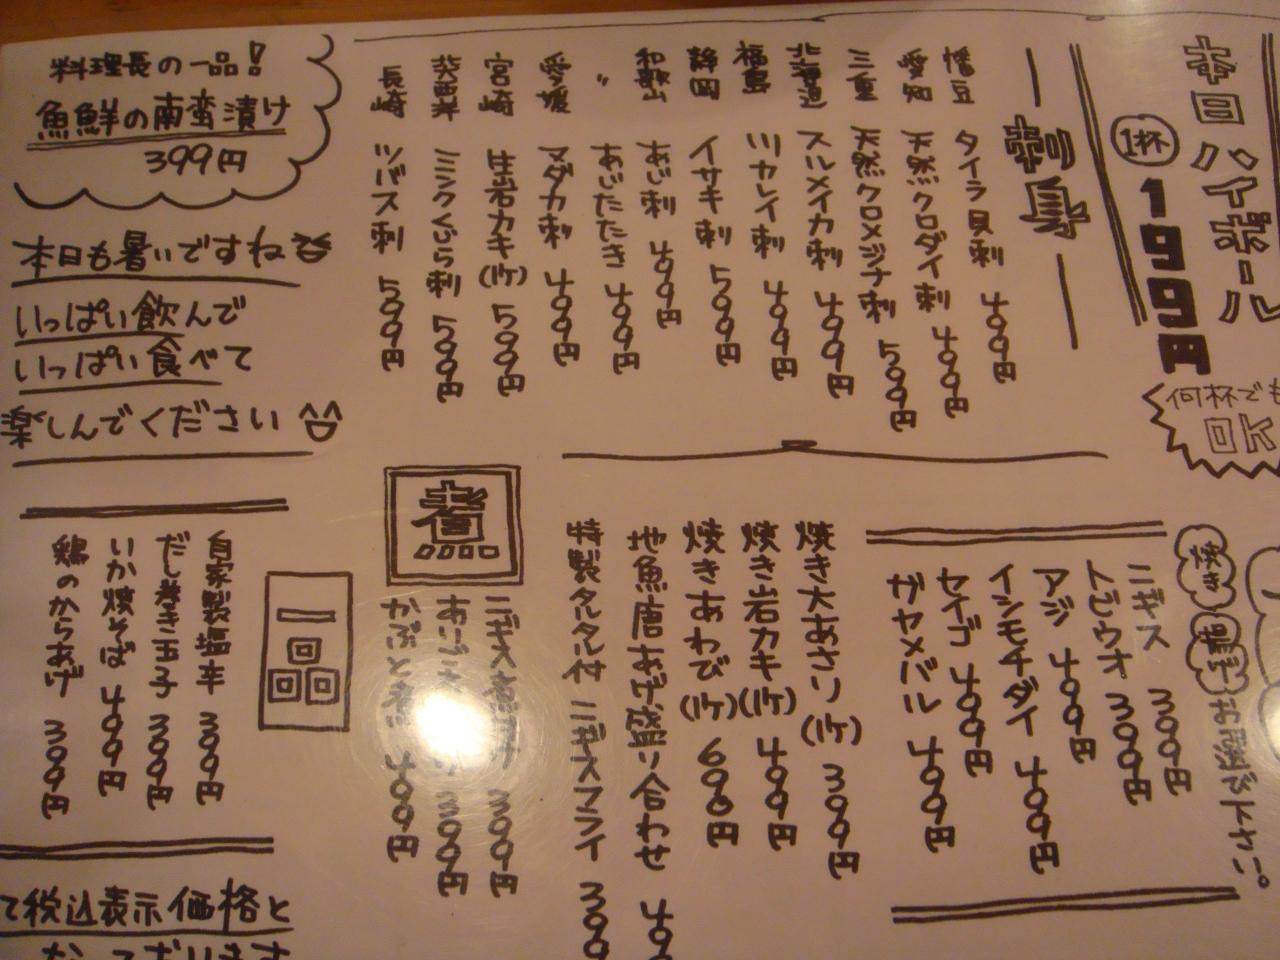 本日ハイボール
1杯
199円
何杯でも
OK
刺身
幡豆 タイラ貝刺 499円
愛知 天然クロダイ刺 499円
三重 天然クロメジナ刺 599円
北海道 スルメイカ刺 499円
福島 川カレイ刺 499円
静岡 イサキ刺 599円
和歌山 あじ刺 499円
〃 あじたたき 499円
愛媛 マダカ刺 499円
宮崎 生岩カキ(1ケ) 599円
ミンクくじら刺 599円
長崎 ツバス刺 599円
料理長の一品!
魚鮮の南蛮漬け
399円
本日も暑いですね
いっぱい飲んで
いっぱい食べて
楽しんでください
焼き 塩干 お選び下さい。
ニギス 399円
トビウオ 399円
アジ 499円
イシモチダイ 499円
セイゴ 499円
ガヤメバル 499円
焼き大あさり(1ケ) 399円
焼き岩カキ(1ケ) 499円
焼きあわび(1ケ) 690円
地魚唐あげ盛り合わせ 49
特製タルタル付 ニギスフライ 399
煮
ニギス 399円
あり 399円
かぶと煮 499円
一品
自家製塩辛 399円
だし巻き玉子 399円
いか焼そば 499円
鶏のからあげ 399円
て税込表示価格と
なっております